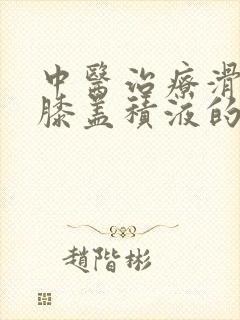 中醫治療滑
膝盖積液的
趙階彬